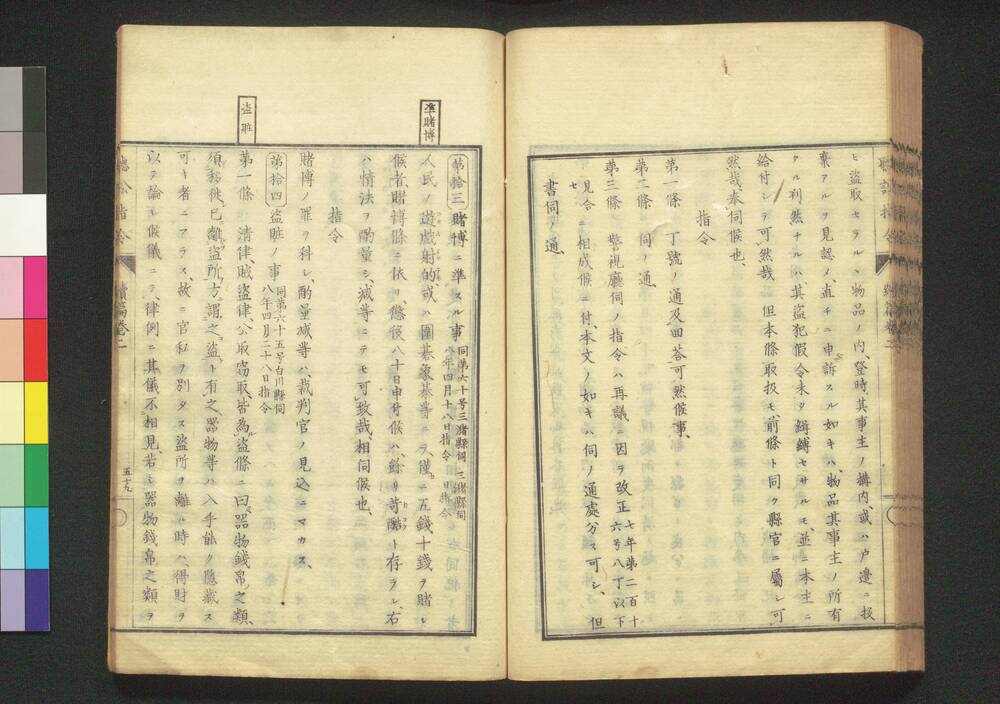 ヒ盗取セラルヽ物品ノ内、登時其事主ノ構内、或ハ戸邊ニ投
棄アルヲ見認メ、直チニ申訴スル如キハ、物品其事主ノ所有
タル利然ナルハ、其盗犯假令未タ緝縛セサルモ、並ニ本主ニ
給付シテ可然哉 但本條取扱モ前條ト同ク縣官ニ屬シ可
然哉奉伺候也、
指令
第一條 丁號ノ通及回荅可然候事、
第二條 同ノ通、
第三條 警視廳伺ノ指令ハ再議ニ因ヲ改正 七年第二百十六号八丁以下
見合ニ相成候ニ付、本文ノ如キハ伺ノ通處分ス可シ、但
書伺ノ通、
準賭博
第拾三 賭博ニ準スル事 同第六十号三潴縣伺 八年四月十八日指令
人民ノ遊戯射的、或ハ圍碁象碁等ニテ、僅ニ五錢十錢ヲ賭シ
候者、賭博條ニ依リ、懲役八十日申付候ハ、餘リ苛酷ト存ラレ、右
ハ情法ヲ酌量シ、減等ニテモ可致哉、相伺候也、
指令
賭博ノ罪ヲ科シ、酌量减等ハ、裁判官ノ見込ニマカス、
盗贓
第拾四 盗贓ノ事 同第六十五号白川縣伺 八年四月二十八日指令
第一條 清律、賊盗律、公取竊取、皆為盗條ニ曰、器物錢帛之類、
須移徙、已離盗所、方謂之盗ト有之、器物等ハ入手能ク隠蔵ス
可キ者ニアラス、故ニ官私ヲ別タス盗所ヲ離ルヽ時ハ得財ヲ
以テ論シ候儀ニテ、律例ニ其儀不相見、若シ器物錢帛之類ヲ
續篇卷二
五十九